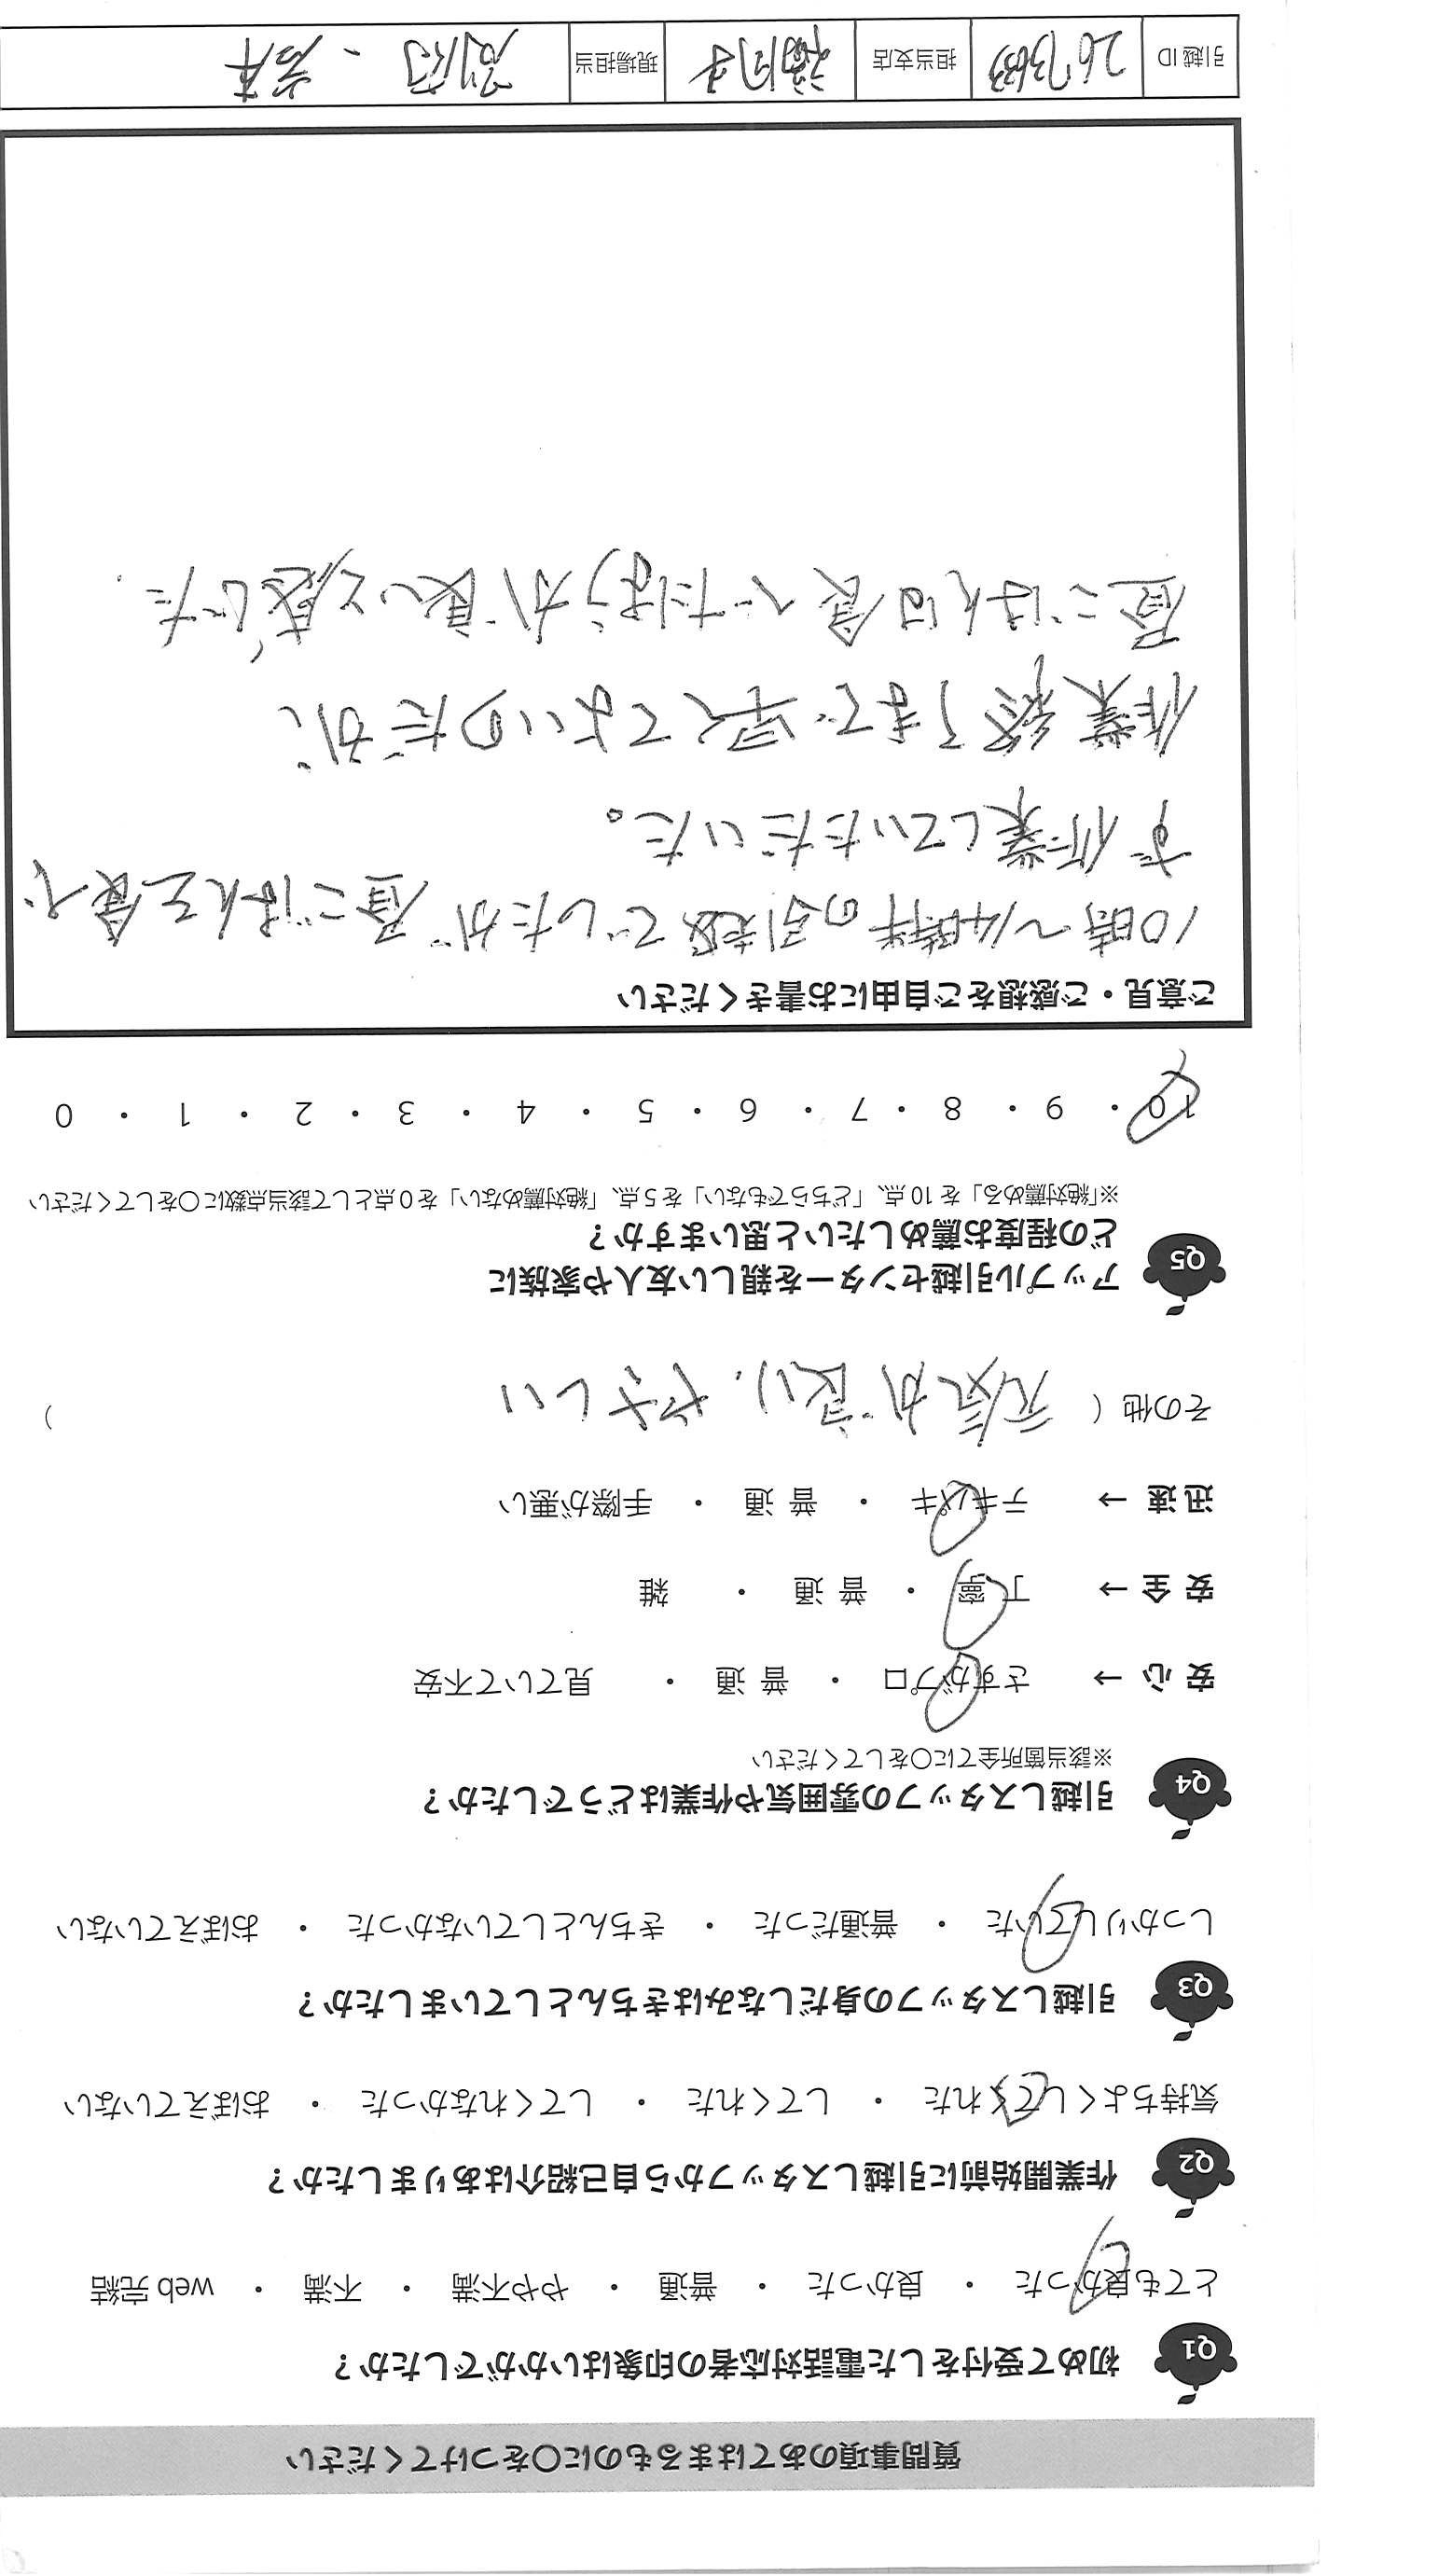 質問事項のあてはまるものに〇をつけてください
Q1 初めて受付をした電話対応者の印象はいかがでしたか？
とても良かった ・ 良かった ・ 普通 ・ やや不満 ・ 不満 ・ web 完結
Q2 作業開始前に引越しスタッフから自己紹介はありましたか？
気持ちよくしてくれた ・ してくれた ・ してくれなかった ・ おぼえていない
Q3 引越しスタッフの身だしなみはきちんとしていましたか？
しっかりしていた ・ 普通だった ・ きちんとしていなかった ・ おぼえていない
Q4 引越しスタッフの雰囲気や作業はどうでしたか？
※該当箇所全てに〇をしてください
安 心 → さすがプロ ・ 普 通 ・ 見ていて不安
安 全 → 丁 寧 ・ 普 通 ・ 雑
迅 速 → テキパキ ・ 普 通 ・ 手際が悪い
その他 ( 元気が良い、やさしい )
Q5 アップル引越センターを親しい友人や家族に
どの程度お薦めしたいと思いますか？
※「絶対薦める」を 10 点、「どちらでもない」を 5 点、「絶対薦めない」を 0 点として該当点数に〇をしてください
10 ・ 9 ・ 8 ・ 7 ・ 6 ・ 5 ・ 4 ・ 3 ・ 2 ・ 1 ・ 0
ご意見・ご感想をご自由にお書きください
10時〜14時半の引越でしたが昼ごはんを食べ
ず作業していただいた。
作業終了まで早くてよいのだが、
昼ごはんは食べたほうが良いと感じた.
引越 ID 担当支店 福岡 現場担当 別府、岩本